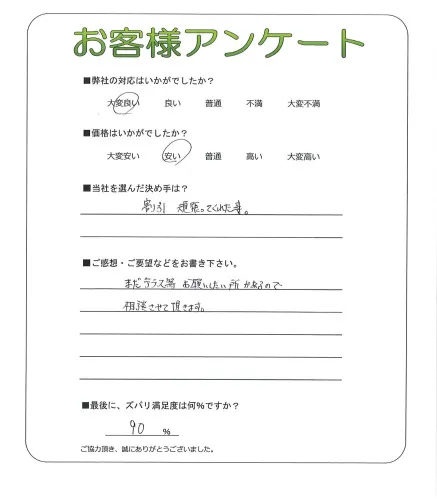 お客様アンケート
■弊社の対応はいかがでしたか？
大変良い 良い 普通 不満 大変不満
■価格はいかがでしたか？
大変安い 安い 普通 高い 大変高い
■当社を選んだ決め手は？
割引 頑張ってくれた事。
■ご感想・ご要望などをお書き下さい。
まだテラス等 お願いしたい所があるので
相談させて頂きます。
■最後に、ズバリ満足度は何%ですか？
90 %
ご協力頂き、誠にありがとうございました。